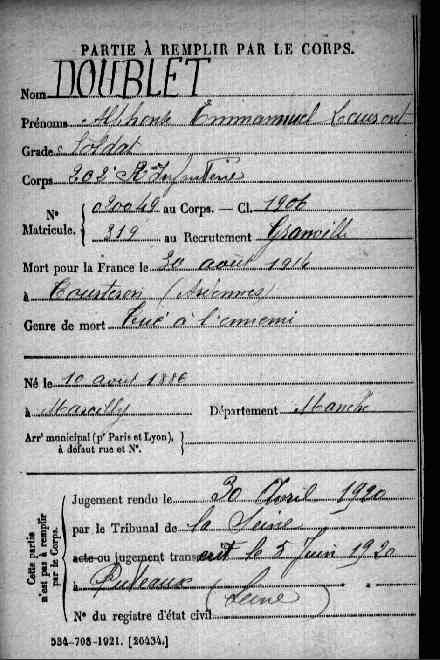 PARTIE À REMPLIR PAR LE CORPS.
Nom DOUBLET
Prénoms Alphonse Emmanuel Laurent
Grade Soldat
Corps 202e R. Infanterie
Nº Matricule. { 020049 au Corps. — Cl. 1906
319 au Recrutement Granville
Mort pour la France le 30 août 1914
à (Ardennes)
Genre de mort Tué à l'ennemi
Né le 10 août 1886
à Marcilly Département Manche
Arrt municipal (pr Paris et Lyon), à défaut rue et Nº. }
Cette partie n'est pas à remplir par le Corps.
Jugement rendu le 30 Avril 1920
par le Tribunal de la Seine
acte ou jugement transcrit le 5 Juin 1920
à Puteaux (Seine)
Nº du registre d'état civil
534-708-1921. [26434.]